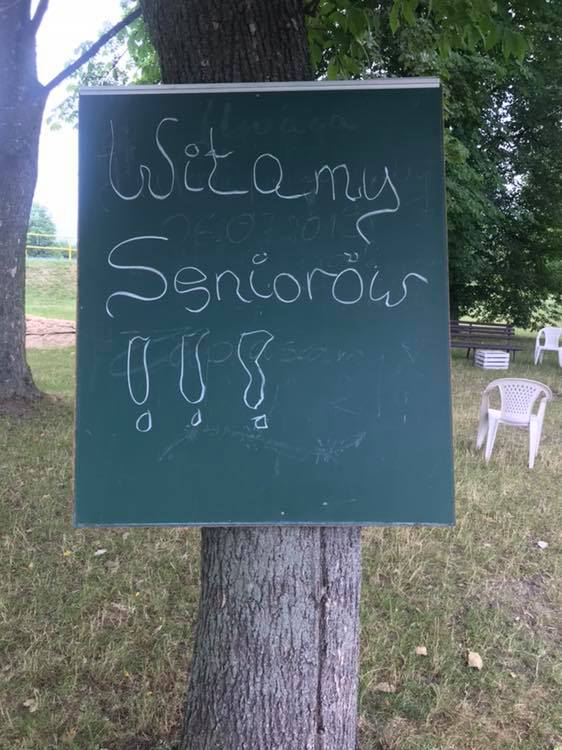 Witamy
Seniorów
!!!